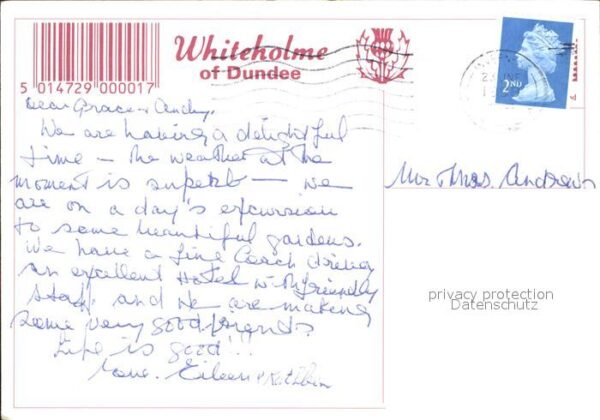 Whiteholme
of Dundee
5 014729 000017
2ND
Dear Grace & Andy,
We are having a delightful
time – the weather at the
moment is superb – we
are on a day's excursion
to some beautiful gardens.
We have a fine Coach driver
an excellent Hotel with friendly
staff, and we are making
some very good friends
Life is good!!!
Love. Eileen &
Mr & Mrs. Andrew
privacy protection
Datenschutz